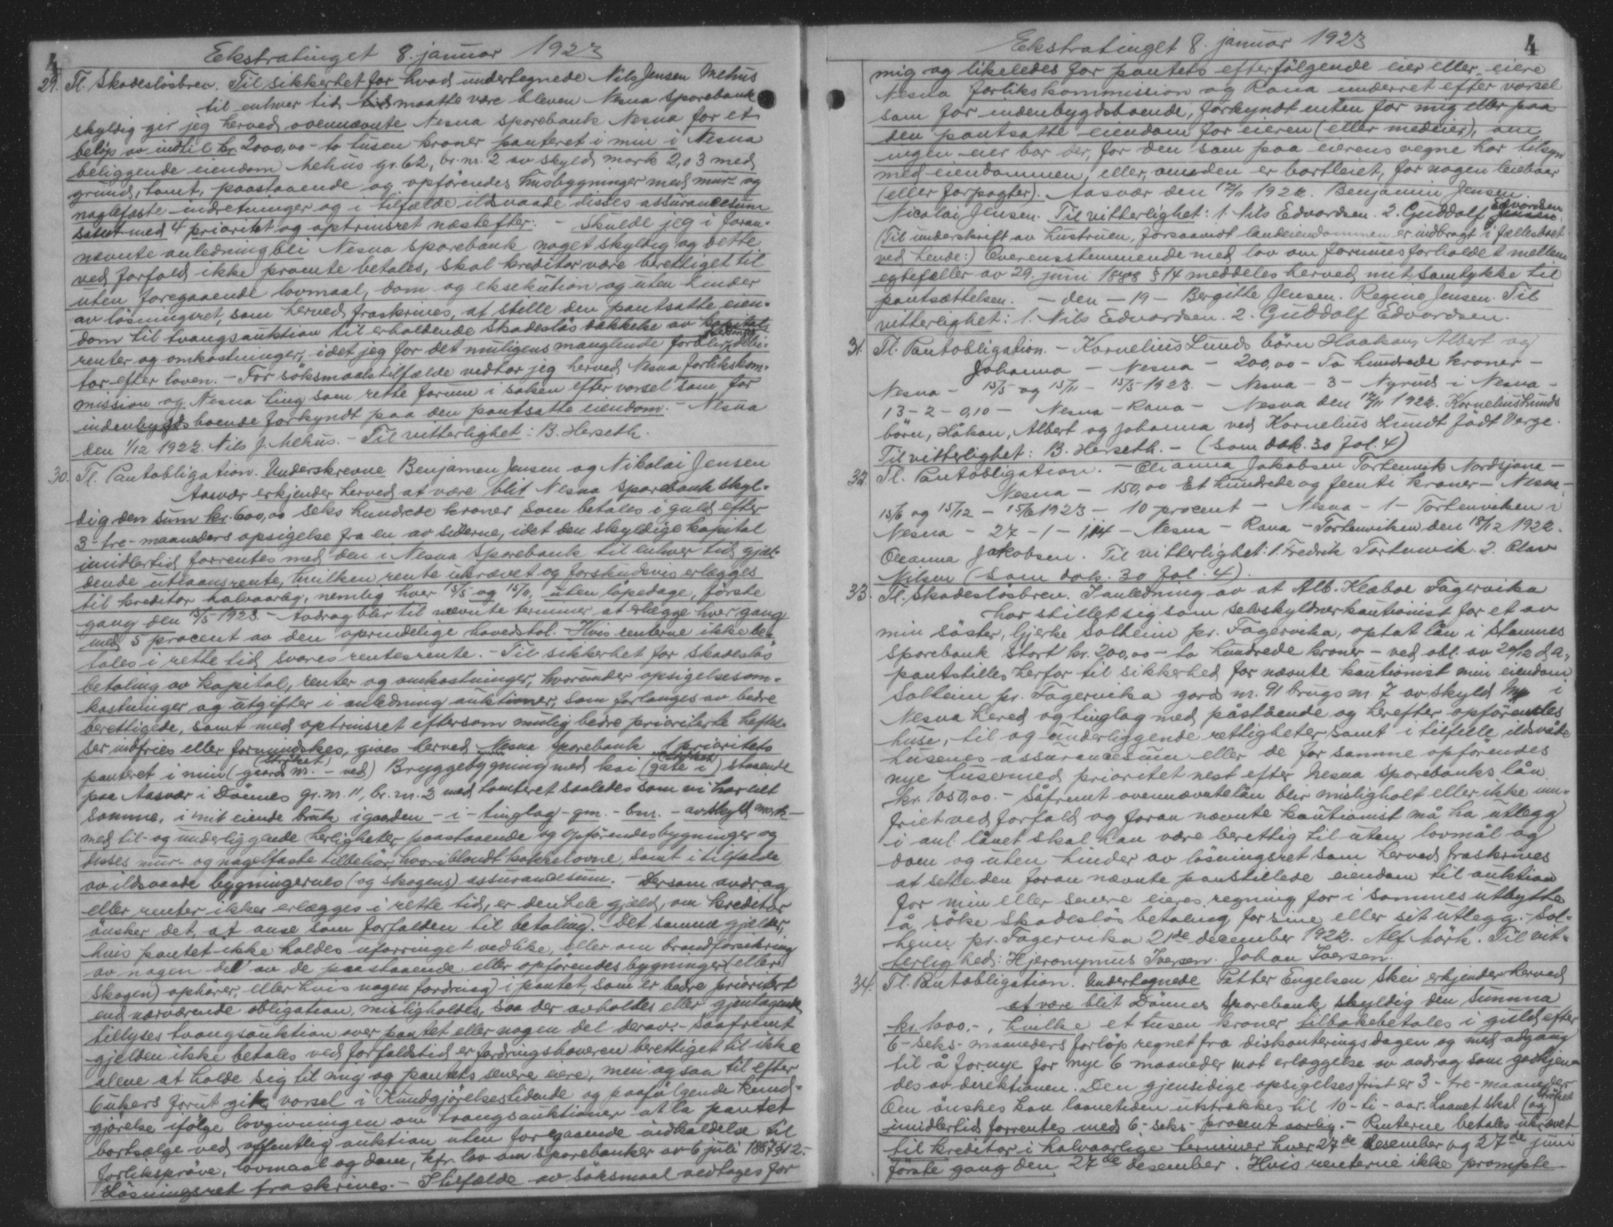 4
Ekstratinget 8. januar 1923
29. Tl. Skadesløsbrev. Til sikkerhet for hvad undertegnede Nils Jensen Mehus
til enhver tid maatte være bleven Nesna Sparebank
skyldig gir jeg herved ovennævnte Nesna sparebank Nesna for et
beløp av indtil kr 2000,00 - to tusen kroner panteret i min i Nesna
beliggende eiendom Mehus gr. 62, br. nr. 2 av skyld mark 2,03 med
grund, tomt, paastaaende og opførendes husbygninger med mur- og
naglefaste indretninger og i tilfælde ildsvaade disses assurancesum
samt med 4 prioritet og optrinsret næstefter: - Skulde jeg i foran-
nævnte anledning bli Nesna sparebank noget skyldig og dette
ved forfald ikke promte betales, skal kreditor være berettiget til
uten foregaaende lovmaal, dom og eksekution og uten hinder
av løsningsret, som herved fraskrives, at stille den pantsatte eien-
dom til tvangsauktion til erholdende skadesløs dækkelse av kapital,
renter og omkostninger, idet jeg for det muligens manglende forblir debi-
tor efter loven. - For søksmaalstilfælde vedtar jeg herved Nesna forlikskom-
mission og Nesna ting som rette forum i saken efter varsel som for
indenbygdsboende forkyndt paa den pantsatte eiendom. - Nesna
den 1/12 1922 Nils J. Mehus. - Til vitterlighet: B. Herseth.
30. Tl. Pantobligation. Underskrevne Benjamen Jensen og Nikolai Jensen
Aasvær erkjender herved at være blit Nesna sparebank skyl-
dig den sum kr. 600,00 seks hundrede kroner som betales i guld efter
3 - tre - maaneders opsigelse fra en av siderne, idet den skyldige kapital
imidlertid forrentes med den i Nesna Sparebank til enhver tid gjæl-
dende utlaansrente, hvilken rente utkrævet og forskudsvis erlægges
til kreditor halvaarlig, nemlig hver 15/5 og 15/11, uten løpedage, første
gang den 15/5 1923 - Avdrag blir til nævnte terminer, at erlægge hver gang
med 5 procent av den oprindelige hovedstol. - Hvis renterne ikke be-
tales i rette tid svares rentesrente. - Til sikkerhet for skadesløs
betaling av kapital, renter og omkostninger, hvorunder opsigelsesom-
kostninger og utgifter i anledning auktioner, som forlanges av bedre
berettigede, samt med optrinsret eftersom mulig bedre prioriterte heftel-
ser indfries eller formindskes, gives herved Nesna sparebank 1 prioritets
panteret i min (gaard nr. - ved) Bryggebygning med kai (gate i) staaende
paa Aasvær i Dønnes gr. nr. 11, br. nr. 3 med tomteret saaledes som vi har eiet
samme, i mit eiende bruk i gaarden - i - tinglag - gm. - bm. - av skyld mark -
med til- og underliggende herligheter, paastaaende og opførendes bygninger og
disses mur- og nagelfaste tilbehør, hvoriblandt kakkelovne, samt i tilfælde
av ildsvaade bygningernes (og skogens) assurancesum. - Dersom avdrag
eller renter ikke erlægges i rette tid, er den hele gjæld, om kreditor
ønsker det, at anse som forfalden til betaling. Det samme gjælder,
hvis pantet ikke holdes uforringet vedlike, eller om brandforsikring
av nogen del av de paastaaende eller opførendes bygninger (eller
skogen) ophører, eller hvis nogen fordring i pantet, som er bedre prioritert
end nærværende obligation, misligholdes, saa der avholdes eller gjentagende
tillyses tvangsauktion over pantet eller nogen del derav - Saafremt
gjælden ikke betales ved forfaldstid er fordringshaveren berettiget til ikke
alene at holde sig til mig og pantets senere eiere, men ogsaa til efter
6 ukers forut gitt varsel i Kundgjørelsestidende og paafølgende kund-
gjørelse ifølge lovgivningen om tvangsauktioner at la pantet
bortsælge ved offentlig auktion uten foregaaende indkaldelse til
forliksprøve, lovmaal og dom, kfr. lov om Sparebanker av 6 juli 1887 § 42 -
Løsningsret fraskrives. - I tilfælde av søksmaal vedtages for
Ekstratinget 8. januar 1923
4
mig og likeledes for pantets efterfølgende eier eller eiere
Nesna forlikskommission og Rana underret efter varsel
som for indenbygdsboende, forkyndt enten for mig eller paa
den pantsatte eiendom for eieren (eller medeier), om
ingen eier bor der, for den som paa eierens vegne har tilsyn
med eiendommen, eller, om den er bortleiet, for nogen leieboer
(eller forpagter). Aasvær den 12/11 1922. Benjamin Jensen.
Nicolai Jensen. Til vitterlighet: 1. Nils Edvardsen. 2. Guddolf Edvardsen
(Til underskrift av hustruen, forsaavidt landeiendommen er indbragt i fællesboet
ved hende:) Overensstemmende med lov om formuesforholdet mellem
egtefæller av 29. juni 1888 § 14 meddeles herved mit samtykke til
pantsættelsen. - den - 19 - Bergitte Jensen. Regine Jensen. Til
vitterlighet: 1. Nils Edvardsen. 2. Guddolf Edvardsen.
31. Tl. Pantobligation. - Kornelius Lunds børn Haakon, Albert og
Johanna - Nesna - 200,00 - To hundrede kroner -
Nesna - 15/5 og 15/11 - 15/5 1923 - Nesna - 3 - Nyrud i Nesna -
13 - 2 - 0,10 - Nesna - Rana - Nesna den 17/11 1922. Kornelius Lunds
børn, Håkon, Albert og Johanna ved Kornelius Lundt født Verge.
Til vitterlighet: B. Herseth. - (Som dok. 30 fol. 4)
32. Tl. Pantobligation. - Oleanna Jakobsen Tortenvik Nordsjona -
Nesna - 150,00 Et hundrede og femti kroner - Nesna -
15/6 og 15/12 - 15/6 1923 - 10 procent - Nesna - 1 - Tortenviken i
Nesna - 27 - 1 - 1,14 - Nesna - Rana - Tortenviken den 18/12 1922.
Oleanna Jakobsen. Til vitterlighet: 1. Fredrik Tortenvik. 2. Olav
Nilsen (Som dok. 30 fol. 4).
33. Tl. Skadesløsbrev. I anledning av at Alb. Klaboe Fagervika
har stillet sig som selvskyldnerkautionist for et av
min søster, Gjerke Solheim pr. Fagervika, optat lån i Stamnes
Sparebank stort kr. 200,00 - to hundrede kroner - ved obl. av 20/12 d. A.,
pantstilles herfor til sikkerhed for nævnte kautionist min eiendom
Solheim pr. Fagervika gard nr. 91 bruks nr 7 av skyld i
Nesna hered og tinglag med påstående og herefter opførendes
huse, til og underliggende rettigheter samt i tilfelle ildsvåde
husenes assurancesum eller de for samme opførendes
nye huse med prioritet nest efter Nesna Sparebanks lån
kr. 1050,00. - Såfremt ovennævnte lån blir misligholt eller ikke inn-
friet ved forfald og foran nævnte kautionist må ha utlegg
i anl. lånet skal han være berettig til uten lovmål og
dom og uten hinder av løsningsret som herved fraskrives
at sette den foran nævnte panstillede eiendom til auktion
for min eller senere eieres regning for i sammes utbytte
å søke skadesløs betaling for sine eller sit utlegg. Sol-
heim pr. Fagervika 21de december 1922. Alf Mørk. Til vit-
terlighed: Hjeronymus Iversen. Johan Iversen.
34. Tl. Pantobligation. Undertegnede Petter Engelsen Skei erkjender herved
at være blit Dønnes Sparebank skyldig den Summa
kr. 1000.-, hvilke et tusen kroner tilbakebetales i guld efter
6 - seks - maaneders forløp regnet fra diskonteringsdagen og med adgang
til å fornye for nye 6 maaneder mot erlæggelse av avdrag som godkjen-
des av direktionen. Den gjensidige opsigelsesfrist er 3 - tre - maaneder
Om ønskes kan laanetiden utstrækkes til 10 - ti - aar. Laanet skal (og
imidlertid forrentes med 6 - seks - procent aarlig. - Renterne betales utkrævet
til kreditor i halvaarlige terminer hver 27de desember og 27de juni
første gang den 27de desember. Hvis renterne ikke prompte